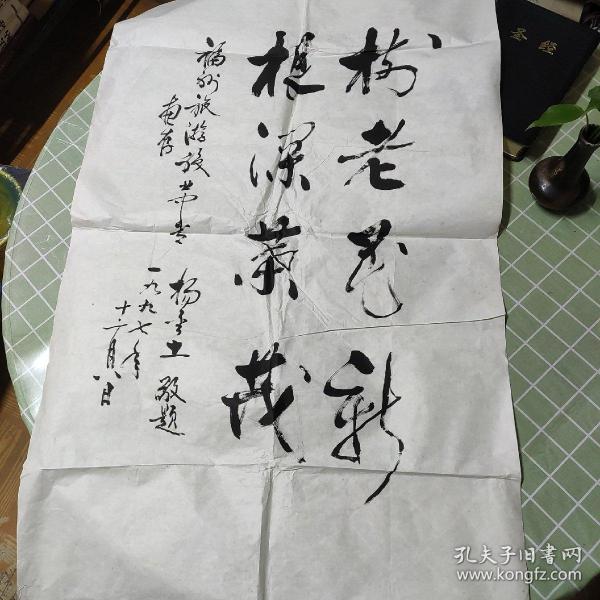 树老花新
根深叶茂
福州旅游校
惠存
杨金土 敬题
一九九七年
十二月八日
圣经
孔夫子旧书网
www.kongfz.com